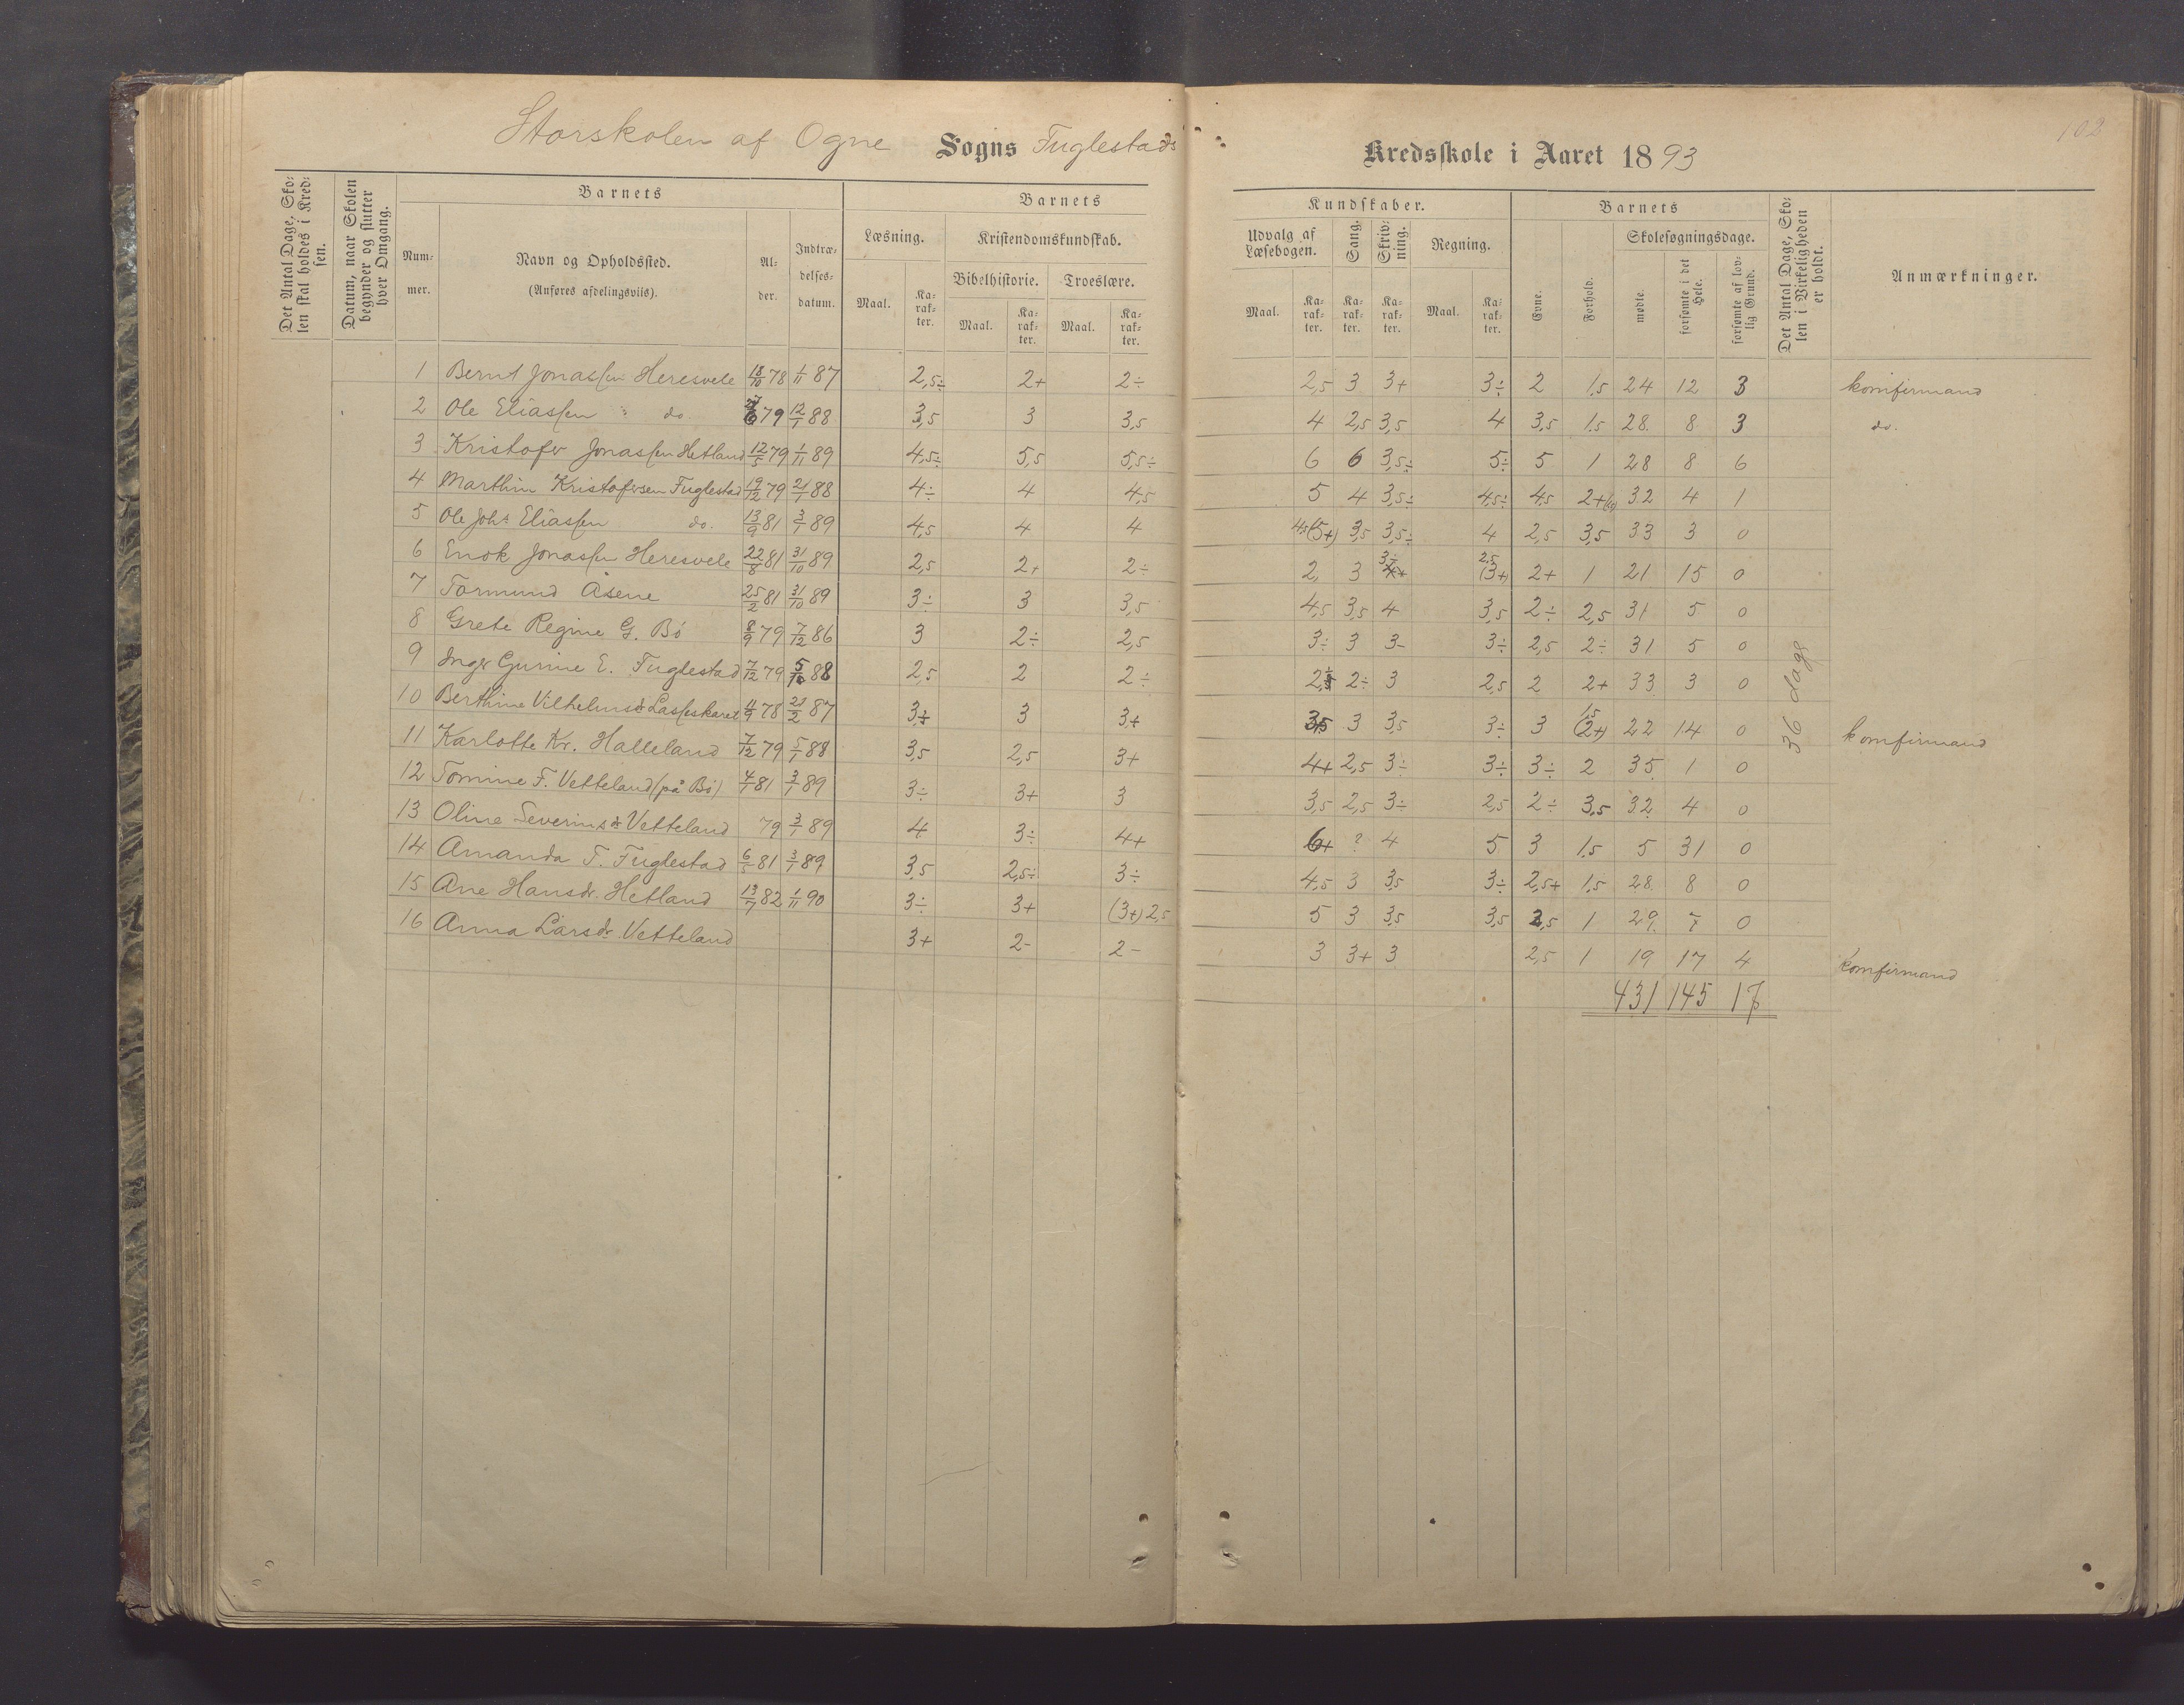 102
Storskolen af Ogne Sogns Fuglestads Kredsskole i Aaret 1893
Det Antal Dage, Skolen skal holdes i Kredsen.
Datum, naar Skolen begynder og slutter hver Omgang.
Barnets
Nummer.
Navn og Opholdssted.
(Anføres afdelingsviis).
Alder.
Indtrædelses-datum.
Barnets
Læsning.
Maal.
Karakter.
Kristendomskundskab.
Bibelhistorie.
Maal.
Karakter.
Troeslære.
Maal.
Karakter.
Kundskaber.
Udvalg af Læsebogen.
Maal.
Karakter.
Sang.
Karakter.
Skrivning.
Karakter.
Regning.
Maal.
Karakter.
Barnets
Evne.
Forhold.
Skolesøgningsdage.
mødte.
forsømte i det Hele.
forsømte af lovlig Grund.
Det Antal Dage, Skolen i Virkeligheden er holdt.
Anmærkninger.
1 Bernt Jonassen Heresvele 18/10 78 1/11 87 2,5÷ 2+ 2÷ 2,5 3 3+ 3÷ 2 1,5 24 12 3 komfirmand
2 Ole Eliassen " do 79 12/1 88 3,5 3 3,5 4 2,5 3,5 4 3,5 1,5 28 8 3 do.
3 Kristofer Jonassen Hetland 12/5 79 1/11 89 4,5÷ 5,5 5,5÷ 6 6 3,5÷ 5÷ 5 1 28 8 6
4 Marthin Kristofersen Fuglestad 19/12 79 21/1 88 4÷ 4 4,5 5 4 3,5÷ 4,5÷ 4,5 2+ 32 4 1
5 Ole Johs Eliassen do. 13/9 81 3/1 89 4,5 4 4 4,5(5+) 3,5 3,5÷ 4 2,5 3,5 33 3 0
6 Enok Jonassen Heresvele 22/8 81 31/10 89 2,5 2+ 2÷ 2, 3 3÷ 2,5 (3+) 2+ 1 21 15 0
7 Tormund Åsene 25/2 81 31/10 89 3÷ 3 3,5 4,5 3,5 4 3,5 2÷ 2,5 31 5 0
8 Grete Regine G. Bö 8/9 79 7/12 86 3 2÷ 2,5 3÷ 3 3- 3÷ 2,5 2÷ 31 5 0
9 Inger Gurine E. Fuglestad 7/12 79 5/10 88 2,5 2 2÷ 2÷ 2÷ 3 2,5 2 2+ 33 3 0
10 Berthine Vilhelmsd Lasseskaret 4/9 78 21/2 87 3÷ 3 3+ 3,5 3 3,5 3÷ 3 1,5 (2+) 22 14 0 komfirmand
11 Karlotte Kr. Halleland 7/12 79 5/1 88 3,5 2,5 3+ 4+ 2,5 3÷ 3÷ 3÷ 2 35 1 0
12 Tomine F. Vetteland (på Bö) 4/1 81 3/1 89 3÷ 3+ 3 3,5 2,5 3÷ 2,5 2÷ 3,5 32 4 0
13 Oline Severinsdr Vetteland 79 3/1 89 4 3÷ 4+ 6+ ? 4 5 3 1,5 5 31 0
14 Amanda T. Fuglestad 6/5 81 3/1 89 3,5 2,5÷ 3÷ 4,5 3 3,5 3÷ 2,5+ 1,5 28 8 0
15 Ane Hansdr. Hetland 13/7 82 1/11 90 3÷ 3+ (3+) 2,5 5 3 3,5 3,5 2,5 1 29 7 0
16 Anna Larsdr Vetteland 3+ 2- 2- 3 3+ 3 2,5 1 19 17 4 komfirmand
36 dage
431 145 17